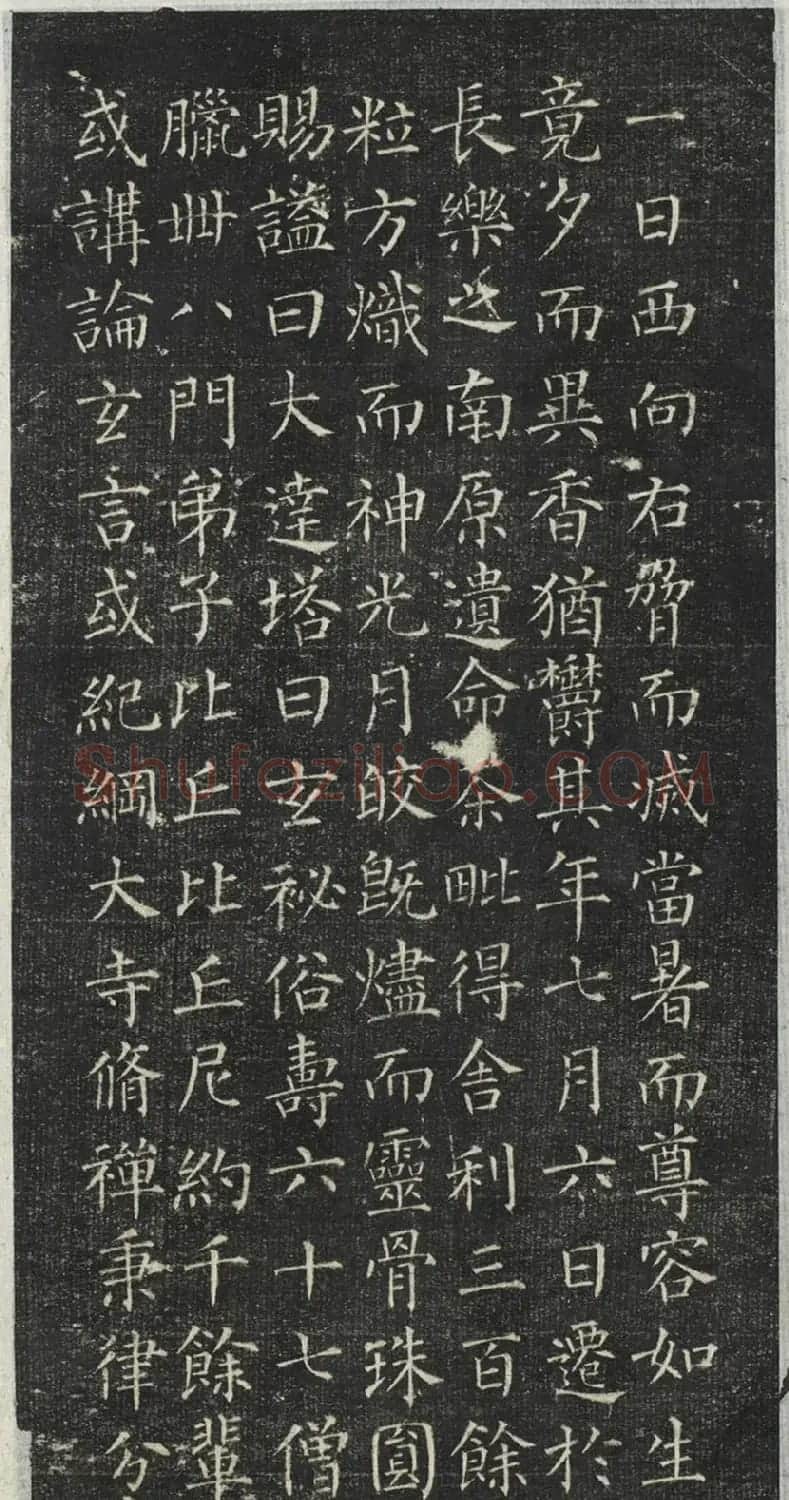 一日西向右脅而滅當暑而尊容如生
竟夕而異香猶欝其年七月六日遷於
長樂之南原遺命荼毗得舍利三百餘
粒方熾而神光月皎既燼而靈骨珠圓
賜謚曰大達塔曰玄祕俗壽六十七僧
臘卌八門弟子比丘比丘尼約千餘輩
或講論玄言或紀綱大寺脩禪秉律分
Shufaziliao.COM